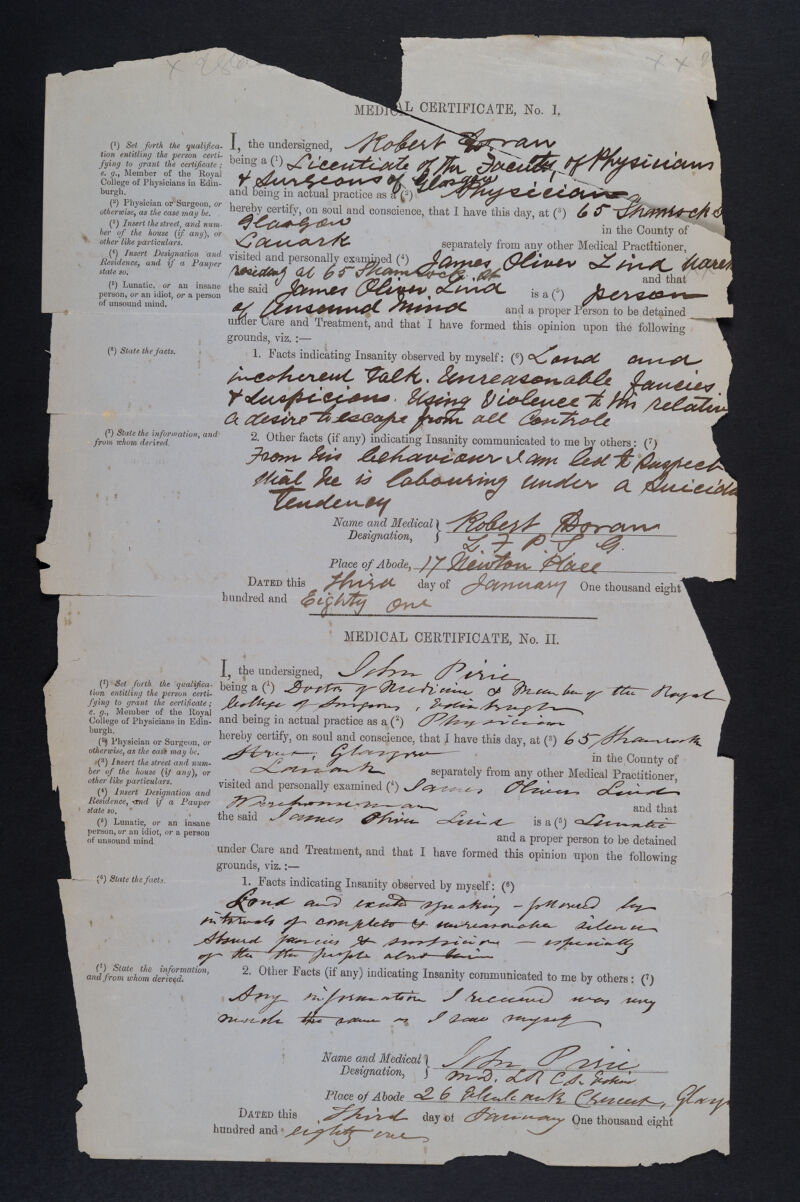 MEDICAL CERTIFICATE, No. I.
(1) Set forth the qualifica-
tion entitling the person certi-
fying to grant the certificate;
e. g., Member of the Royal
College of Physicians in Edin-
burgh.
(2) Physician or Surgeon, or
otherwise, as the case may be.
(3) Insert the street, and num-
ber of the house (if any), or
other like particulars.
(4) Insert Designation and
Residence, and if a Pauper
state so.
(5) Lunatic, or an insane
person, or an idiot, or a person
of unsound mind.
I, the undersigned, Robert Doran
being a (1) Licentiate of the Faculty of Physicians
& Surgeons of Glasgow
and being in actual practice as a (2) Physician
hereby certify, on soul and conscience, that I have this day, at (3) 65 Shamrock S
Glasgow in the County of
Lanark separately from any other Medical Practitioner,
visited and personally examined (4) James Oliver Lind Wareh
residing at 65 Shamrock St and that
the said James Oliver Lind is a (5) person
of Unsound Mind and a proper Person to be detained
under Care and Treatment, and that I have formed this opinion upon the following
grounds, viz. :—
(6) State the facts.
1. Facts indicating Insanity observed by myself: (6) Loud and
incoherent talk. Unreasonable fancies
& Suspicions. Using Violence to his relative
a desire to escape from all Controle
(7) State the information, and
from whom derived.
2. Other facts (if any) indicating Insanity communicated to me by others: (7)
From his behaviour I am led to suspect
that he is labouring under a Suicida
Tendency
Name and Medical Designation, Robert Doran
L. F. P. S. G.
Place of Abode, 17 Newton Place
DATED this third day of January One thousand eight
hundred and Eighty one
MEDICAL CERTIFICATE, No. II.
(1) Set forth the qualifica-
tion entitling the person certi-
fying to grant the certificate;
e. g., Member of the Royal
College of Physicians in Edin-
burgh.
(2) Physician or Surgeon, or
otherwise, as the case may be.
(3) Insert the street and num-
ber of the house (if any), or
other like particulars.
(4) Insert Designation and
Residence, and if a Pauper
state so.
(5) Lunatic, or an insane
person, or an idiot, or a person
of unsound mind
I, the undersigned, John Pirie
being a (1) Doctor of Medicine & Member of the Royal
College of Surgeons, Edinburgh
and being in actual practice as a (2) Physician
hereby certify, on soul and conscience, that I have this day, at (3) 65 Shamrock
Street, Glasgow in the County of
Lanark separately from any other Medical Practitioner,
visited and personally examined (4) James Oliver Lind
Warehouseman and that
the said James Oliver Lind is a (5) Lunatic
and a proper person to be detained
under Care and Treatment, and that I have formed this opinion upon the following
grounds, viz. :—
(6) State the facts.
1. Facts indicating Insanity observed by myself: (6)
Loud and excited speaking - followed by
intervals of complete & unreasonable silence
Absurd fancies & suspicions - especially
of the people about him
(7) State the information,
and from whom derived.
2. Other Facts (if any) indicating Insanity communicated to me by others: (7)
Any information I received was very
much the same as I saw myself
Name and Medical Designation, John Pirie
M.D. L.R.C.S. Edin
Place of Abode 26 Crescent, Glasg
DATED this third day of January One thousand eight
hundred and eighty one